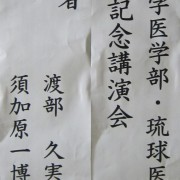 学医学部・琉球医
記念講演会
者
渡部 久実
須加原一博